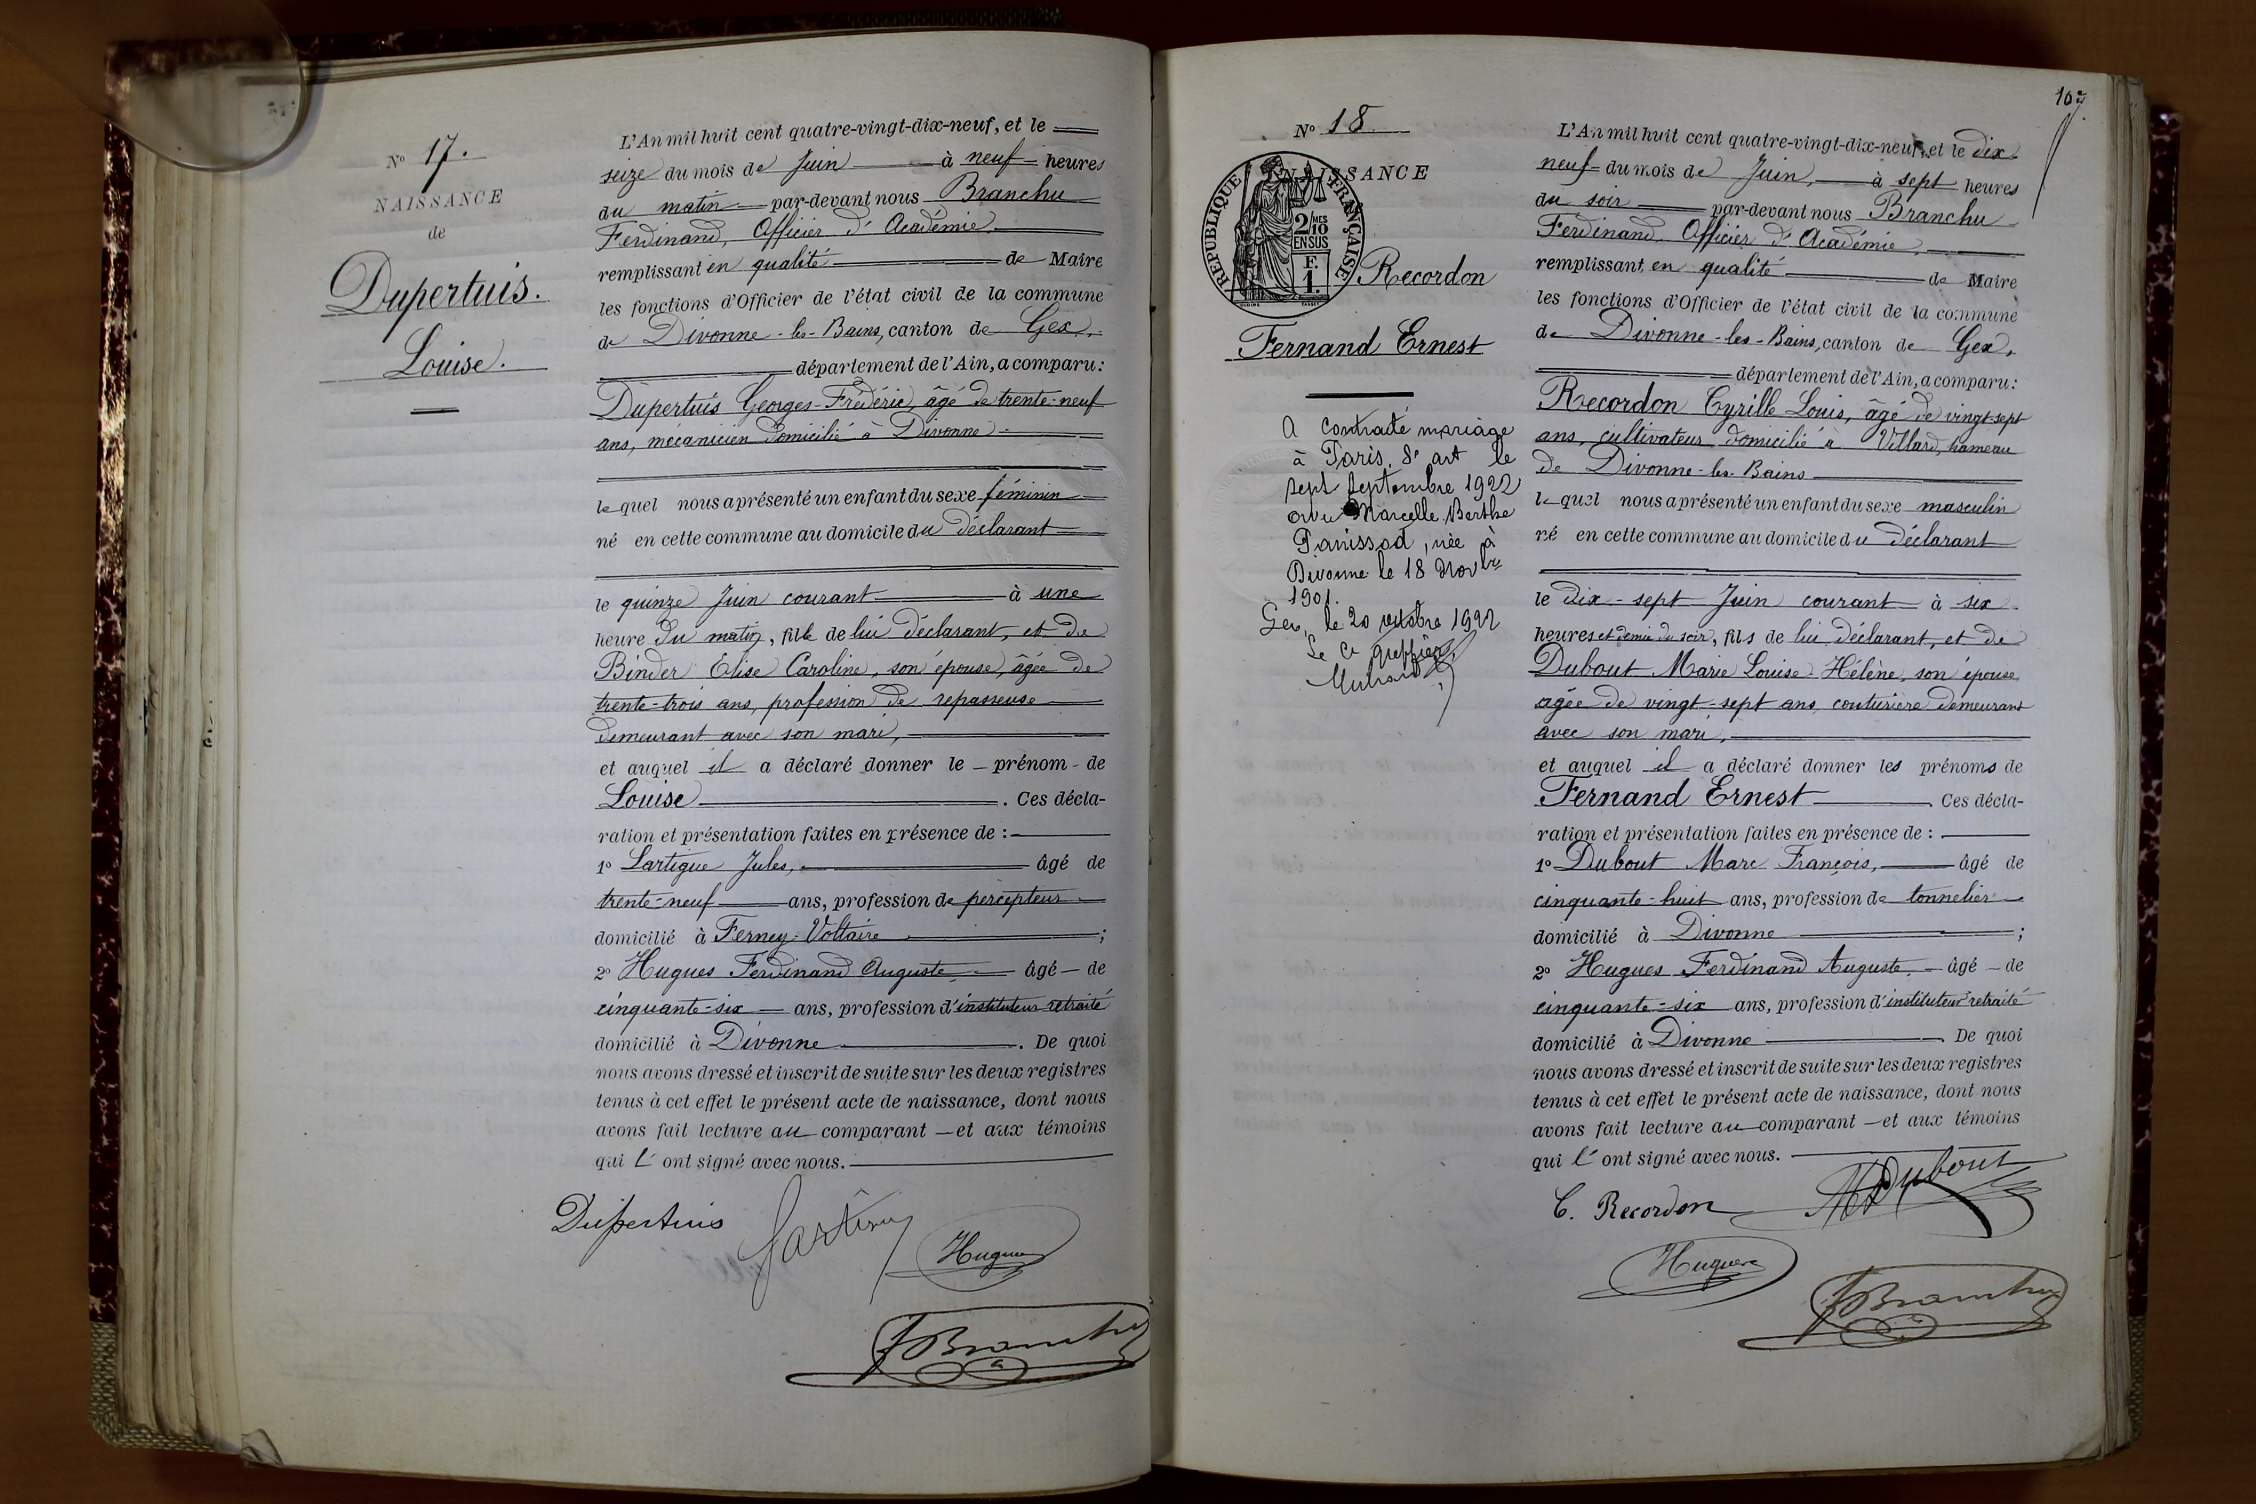 No 17.
NAISSANCE
de
Dupertuis.
Louise.
L'An mil huit cent quatre-vingt-dix-neuf, et le
seize du mois de Juin à neuf heures
du matin par-devant nous Branchu
Ferdinand, Officier d'Académie
remplissant en qualité de Maire
les fonctions d'Officier de l'état civil de la commune
de Divonne-les-Bains, canton de Gex,
département de l'Ain, a comparu:
Dupertuis Georges-Frédéric, âgé de trente-neuf
ans, mécanicien domicilié à Divonne
lequel nous a présenté un enfant du sexe féminin
né en cette commune au domicile du déclarant
le quinze Juin courant à une
heure du matin, fille de lui déclarant, et de
Binder Elise Caroline, son épouse, âgée de
trente-trois ans, profession de repasseuse
demeurant avec son mari,
et auquel il a déclaré donner le prénom de
Louise. Ces décla-
ration et présentation faites en présence de :
1o Lartigue Jules, âgé de
trente-neuf ans, profession de percepteur
domicilié à Ferney-Voltaire ;
2o Hugues Ferdinand Auguste, âgé de
cinquante-six ans, profession d'instituteur retraité
domicilié à Divonne. De quoi
nous avons dressé et inscrit de suite sur les deux registres
tenus à cet effet le présent acte de naissance, dont nous
avons fait lecture au comparant et aux témoins
qui l'ont signé avec nous.
Dupertuis Lartigue Hugues
FBranchu
No 18.
NAISSANCE
RÉPUBLIQUE FRANÇAISE
2/10 MES
EN SUS
F.
1.
Recordon
Fernand Ernest
A contracté mariage
à Paris, 8e art le
sept septembre 1922
avec Marcelle Berthe
Panissod, née à
Divonne le 18 Novbre
1901.
Gex, le 20 octobre 1922
Le Cs greffier
L'An mil huit cent quatre-vingt-dix-neuf, et le dix-
neuf du mois de Juin, à sept heures
du soir par-devant nous Branchu
Ferdinand, Officier d'Académie,
remplissant en qualité de Maire
les fonctions d'Officier de l'état civil de la commune
de Divonne-les-Bains, canton de Gex,
département de l'Ain, a comparu:
Recordon Cyrille Louis, âgé de vingt-sept
ans, cultivateur domicilié à Villard, hameau
de Divonne-les-Bains
lequel nous a présenté un enfant du sexe masculin
né en cette commune au domicile du déclarant
le dix-sept Juin courant à six
heures et demie du soir, fils de lui déclarant, et de
Dubout Marie Louise Hélène, son épouse
agée de vingt-sept ans, couturière demeurant
avec son mari,
et auquel il a déclaré donner les prénoms de
Fernand Ernest. Ces décla-
ration et présentation faites en présence de :
1o Dubout Marc François, âgé de
cinquante-huit ans, profession de tonnelier
domicilié à Divonne ;
2o Hugues Ferdinand Auguste, âgé de
cinquante-six ans, profession d'instituteur retraité
domicilié à Divonne. De quoi
nous avons dressé et inscrit de suite sur les deux registres
tenus à cet effet le présent acte de naissance, dont nous
avons fait lecture au comparant et aux témoins
qui l'ont signé avec nous.
C. Recordon Dubout
Hugues
FBranchu